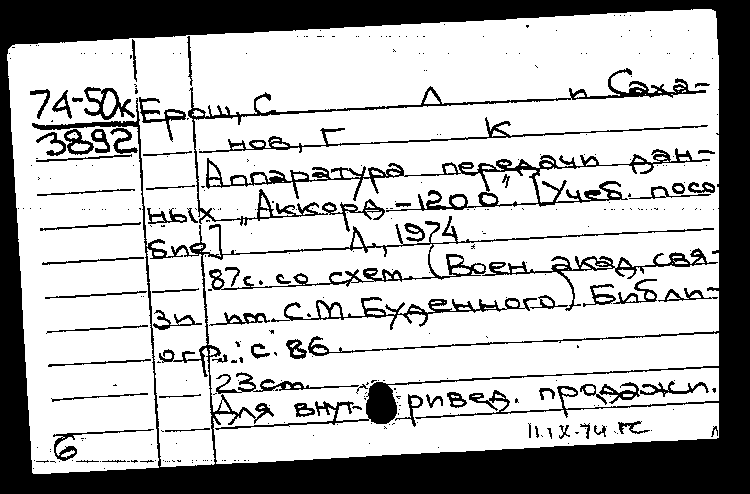 74-50к Ерош, С Л и Саха-
3892 нов, Г К
Аппаратура передачи дан-
ных „Аккорд-1200". [Учеб. посо
бие]. Л., 1974.
87с. со схем. (Воен. акад. свя-
зи им. С.М. Буденного). Библи-
огр.: с. 86.
23см.
Для внут ривед. продажи.
11.IX-74 ГС
6